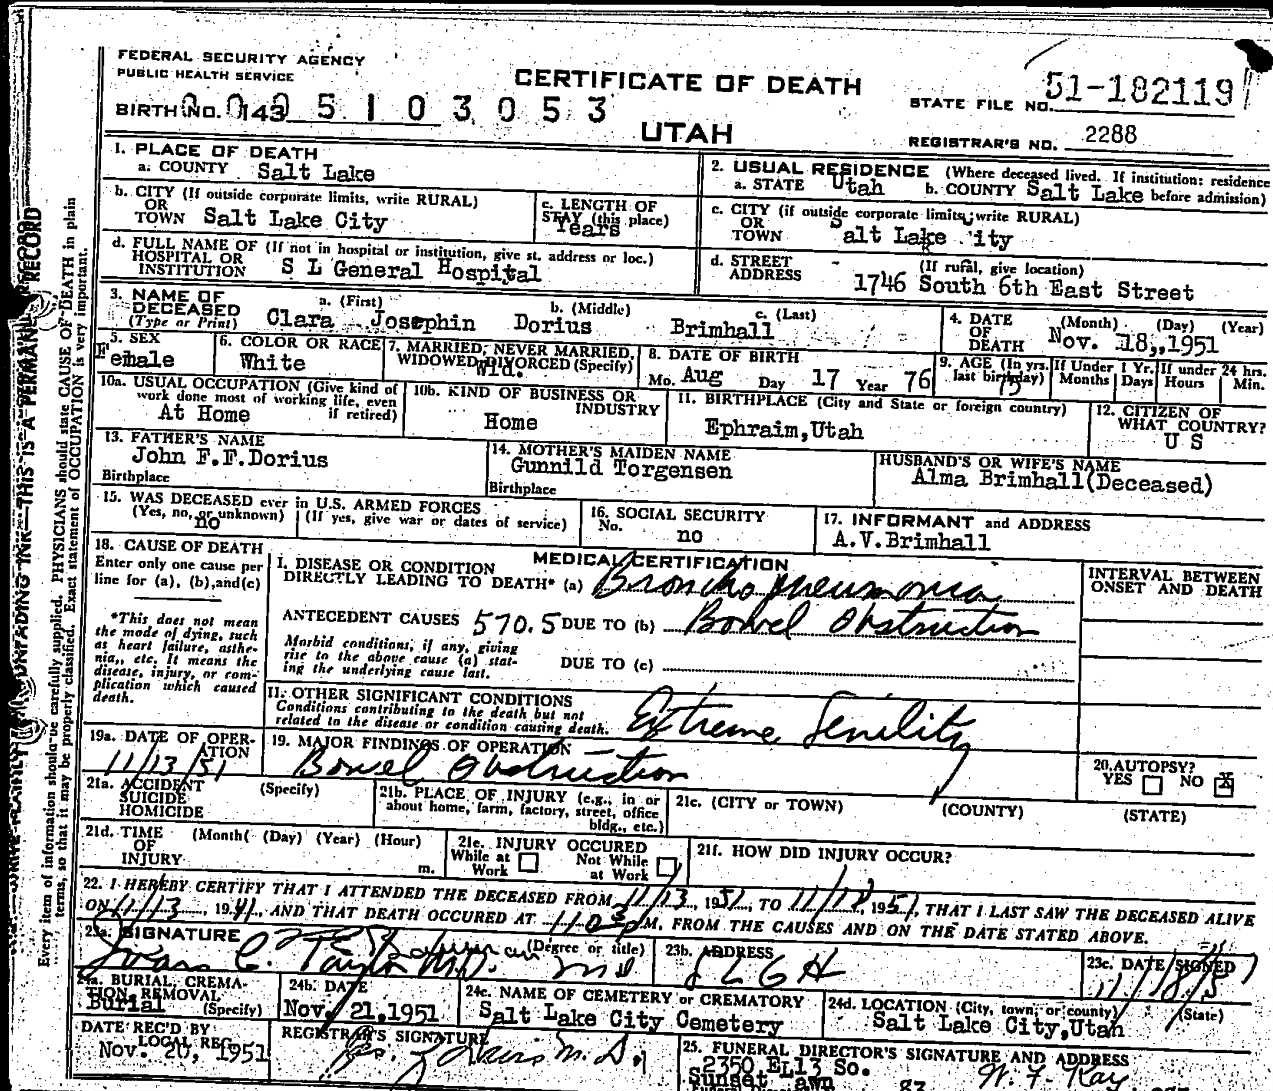 FEDERAL SECURITY AGENCY
PUBLIC HEALTH SERVICE
CERTIFICATE OF DEATH
STATE FILE NO. 51-182119
BIRTH NO. 143 5 1 0 3 0 5 3
UTAH
REGISTRAR'S NO. 2288
1. PLACE OF DEATH
a. COUNTY Salt Lake
2. USUAL RESIDENCE (Where deceased lived. If institution: residence
a. STATE Utah b. COUNTY Salt Lake before admission)
b. CITY (If outside corporate limits, write RURAL)
OR
TOWN Salt Lake City
c. LENGTH OF
STAY (this place)
Years
c. CITY (if outside corporate limits, write RURAL)
OR
TOWN Salt Lake ity
d. FULL NAME OF (If not in hospital or institution, give st. address or loc.)
HOSPITAL OR
INSTITUTION S L General Hospital
d. STREET
ADDRESS
(If rural, give location)
1746 South 6th East Street
3. NAME OF
DECEASED
(Type or Print)
a. (First) b. (Middle) c. (Last)
Clara Josephin Dorius Brimhall
4. DATE
OF
DEATH
(Month) (Day) (Year)
Nov. 18, 1951
5. SEX
Female
6. COLOR OR RACE
White
7. MARRIED, NEVER MARRIED,
WIDOWED, DIVORCED (Specify)
Wid.
8. DATE OF BIRTH
Mo. Aug Day 17 Year 76
9. AGE (In yrs.
last birthday)
75
If Under 1 Yr.
Months Days
If under 24 hrs.
Hours Min.
10a. USUAL OCCUPATION (Give kind of
work done most of working life, even
if retired)
At Home
10b. KIND OF BUSINESS OR
INDUSTRY
Home
11. BIRTHPLACE (City and State or foreign country)
Ephraim, Utah
12. CITIZEN OF
WHAT COUNTRY?
U S
13. FATHER'S NAME
John F.F.Dorius
Birthplace
14. MOTHER'S MAIDEN NAME
Gunnild Torgensen
Birthplace
HUSBAND'S OR WIFE'S NAME
Alma Brimhall(Deceased)
15. WAS DECEASED ever in U.S. ARMED FORCES
(Yes, no, or unknown) (If yes, give war or dates of service)
no
16. SOCIAL SECURITY
No. no
17. INFORMANT and ADDRESS
A.V.Brimhall
18. CAUSE OF DEATH
Enter only one cause per
line for (a), (b), and (c)
*This does not mean
the mode of dying, such
as heart failure, asthe-
nia, etc. It means the
disease, injury, or com-
plication which caused
death.
MEDICAL CERTIFICATION
I. DISEASE OR CONDITION
DIRECTLY LEADING TO DEATH* (a) Bronchopneumonia
ANTECEDENT CAUSES 570.5 DUE TO (b) Bowel Obstruction
Morbid conditions, if any, giving
rise to the above cause (a) stat-
ing the underlying cause last.
DUE TO (c)
II. OTHER SIGNIFICANT CONDITIONS
Conditions contributing to the death but not
related to the disease or condition causing death.
Extreme Senility
INTERVAL BETWEEN
ONSET AND DEATH
19a. DATE OF OPER-
ATION
11/13/51
19. MAJOR FINDINGS OF OPERATION
Bowel Obstruction
20. AUTOPSY?
YES NO X
21a. ACCIDENT (Specify)
SUICIDE
HOMICIDE
21b. PLACE OF INJURY (e.g., in or
about home, farm, factory, street, office
bldg., etc.)
21c. (CITY or TOWN) (COUNTY) (STATE)
21d. TIME (Month) (Day) (Year) (Hour)
OF
INJURY m.
21e. INJURY OCCURED
While at Work Not While at Work
21f. HOW DID INJURY OCCUR?
22. I HEREBY CERTIFY THAT I ATTENDED THE DECEASED FROM 11/13, 1951, TO 11/18, 1951, THAT I LAST SAW THE DECEASED ALIVE
ON 11/13, 1941, AND THAT DEATH OCCURED AT M. FROM THE CAUSES AND ON THE DATE STATED ABOVE.
23a. SIGNATURE (Degree or title)
C. Taylor M.D. md
23b. ADDRESS
SLGH
23c. DATE SIGNED
11/18/51
24a. BURIAL, CREMA-
TION, REMOVAL
(Specify)
Burial
24b. DATE
Nov. 21, 1951
24c. NAME OF CEMETERY or CREMATORY
Salt Lake City Cemetery
24d. LOCATION (City, town, or county) (State)
Salt Lake City, Utah
DATE REC'D BY
LOCAL REG.
Nov. 20, 1951
REGISTRAR'S SIGNATURE
M.D.
25. FUNERAL DIRECTOR'S SIGNATURE AND ADDRESS
2350 So.
Sunset Lawn
Every item of information should be carefully supplied. PHYSICIANS should state CAUSE OF DEATH in plain
terms, so that it may be properly classified. Exact statement of OCCUPATION is very important.
UNFADING INK—THIS IS A PERMANENT RECORD